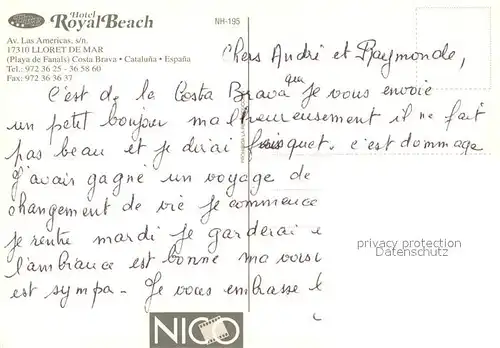 Hotel
Royal Beach
NH-195
Av. Las Americas, s/n.
17310 LLORET DE MAR
(Playa de Fanals) Costa Brava • Cataluña • España
Tel.: 972 36 25 - 36 58 60
Fax: 972 36 36 37
Chers André et Raymonde,
que
C'est de la Costa Brava je vous envoie
un petit bonjour malheureusement il ne fait
pas beau et je dirai frisquet. c'est dommage
J'avais gagné un voyage de
changement de vie je commence
je rentre mardi je garderai
l'ambiance est bonne ma
est sympa. Je vous embrasse
privacy protection
Datenschutz
NICO